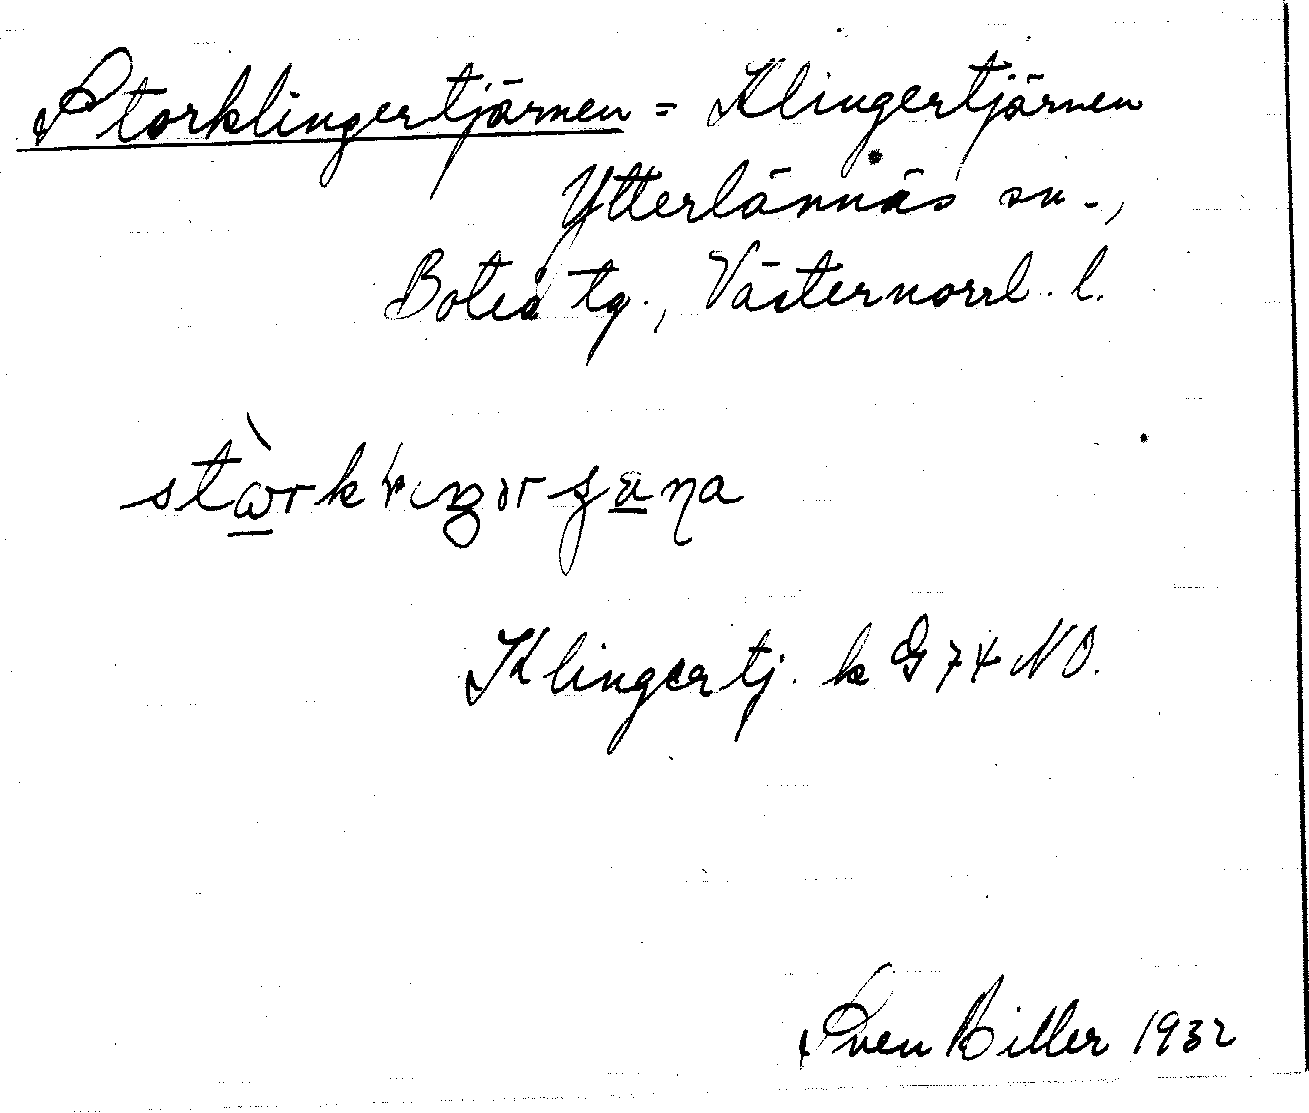 Storklingertjärnen = Klingertjärnen
Ytterlännäs sn.,
Boteå tg., Västernorrl. l.
Klingertj. k G 74 NO.
Sven Biller 1932